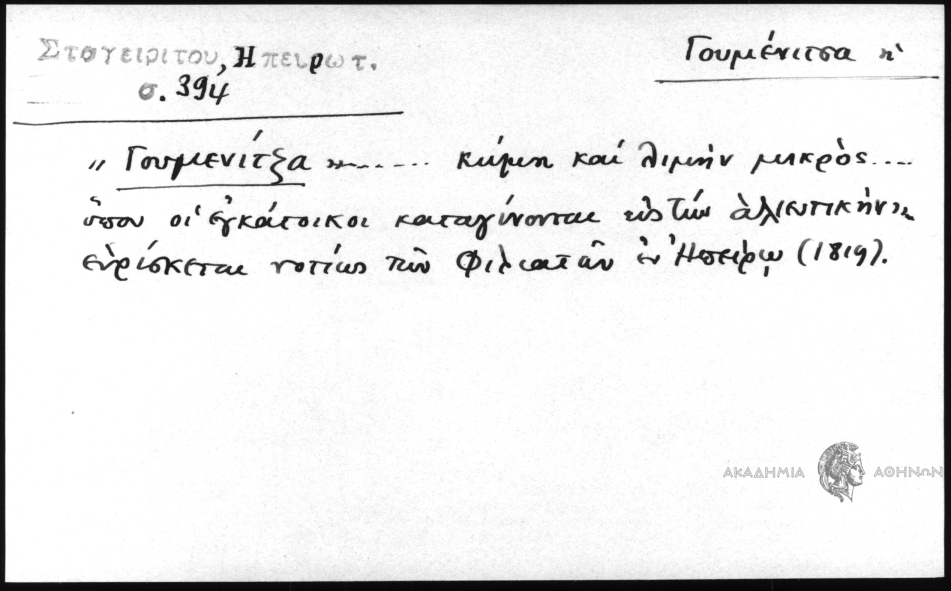 Σταγειρίτου, Ηπειρωτ.
σ. 394
Γουμένιτσα ἡ
„ Γουμενίτζα „...... κώμη καί λιμήν μικρὸς....
ὅπου οἱ ἐγκάτοικοι καταγίνονται εἰς τὴν ἁλιευτικήν „
εὑρίσκεται νοτίως τῶν Φιλιατῶν ἐν Ἠπείρῳ (1819).
ΑΚΑΔΗΜΙΑ ΑΘΗΝΩΝ